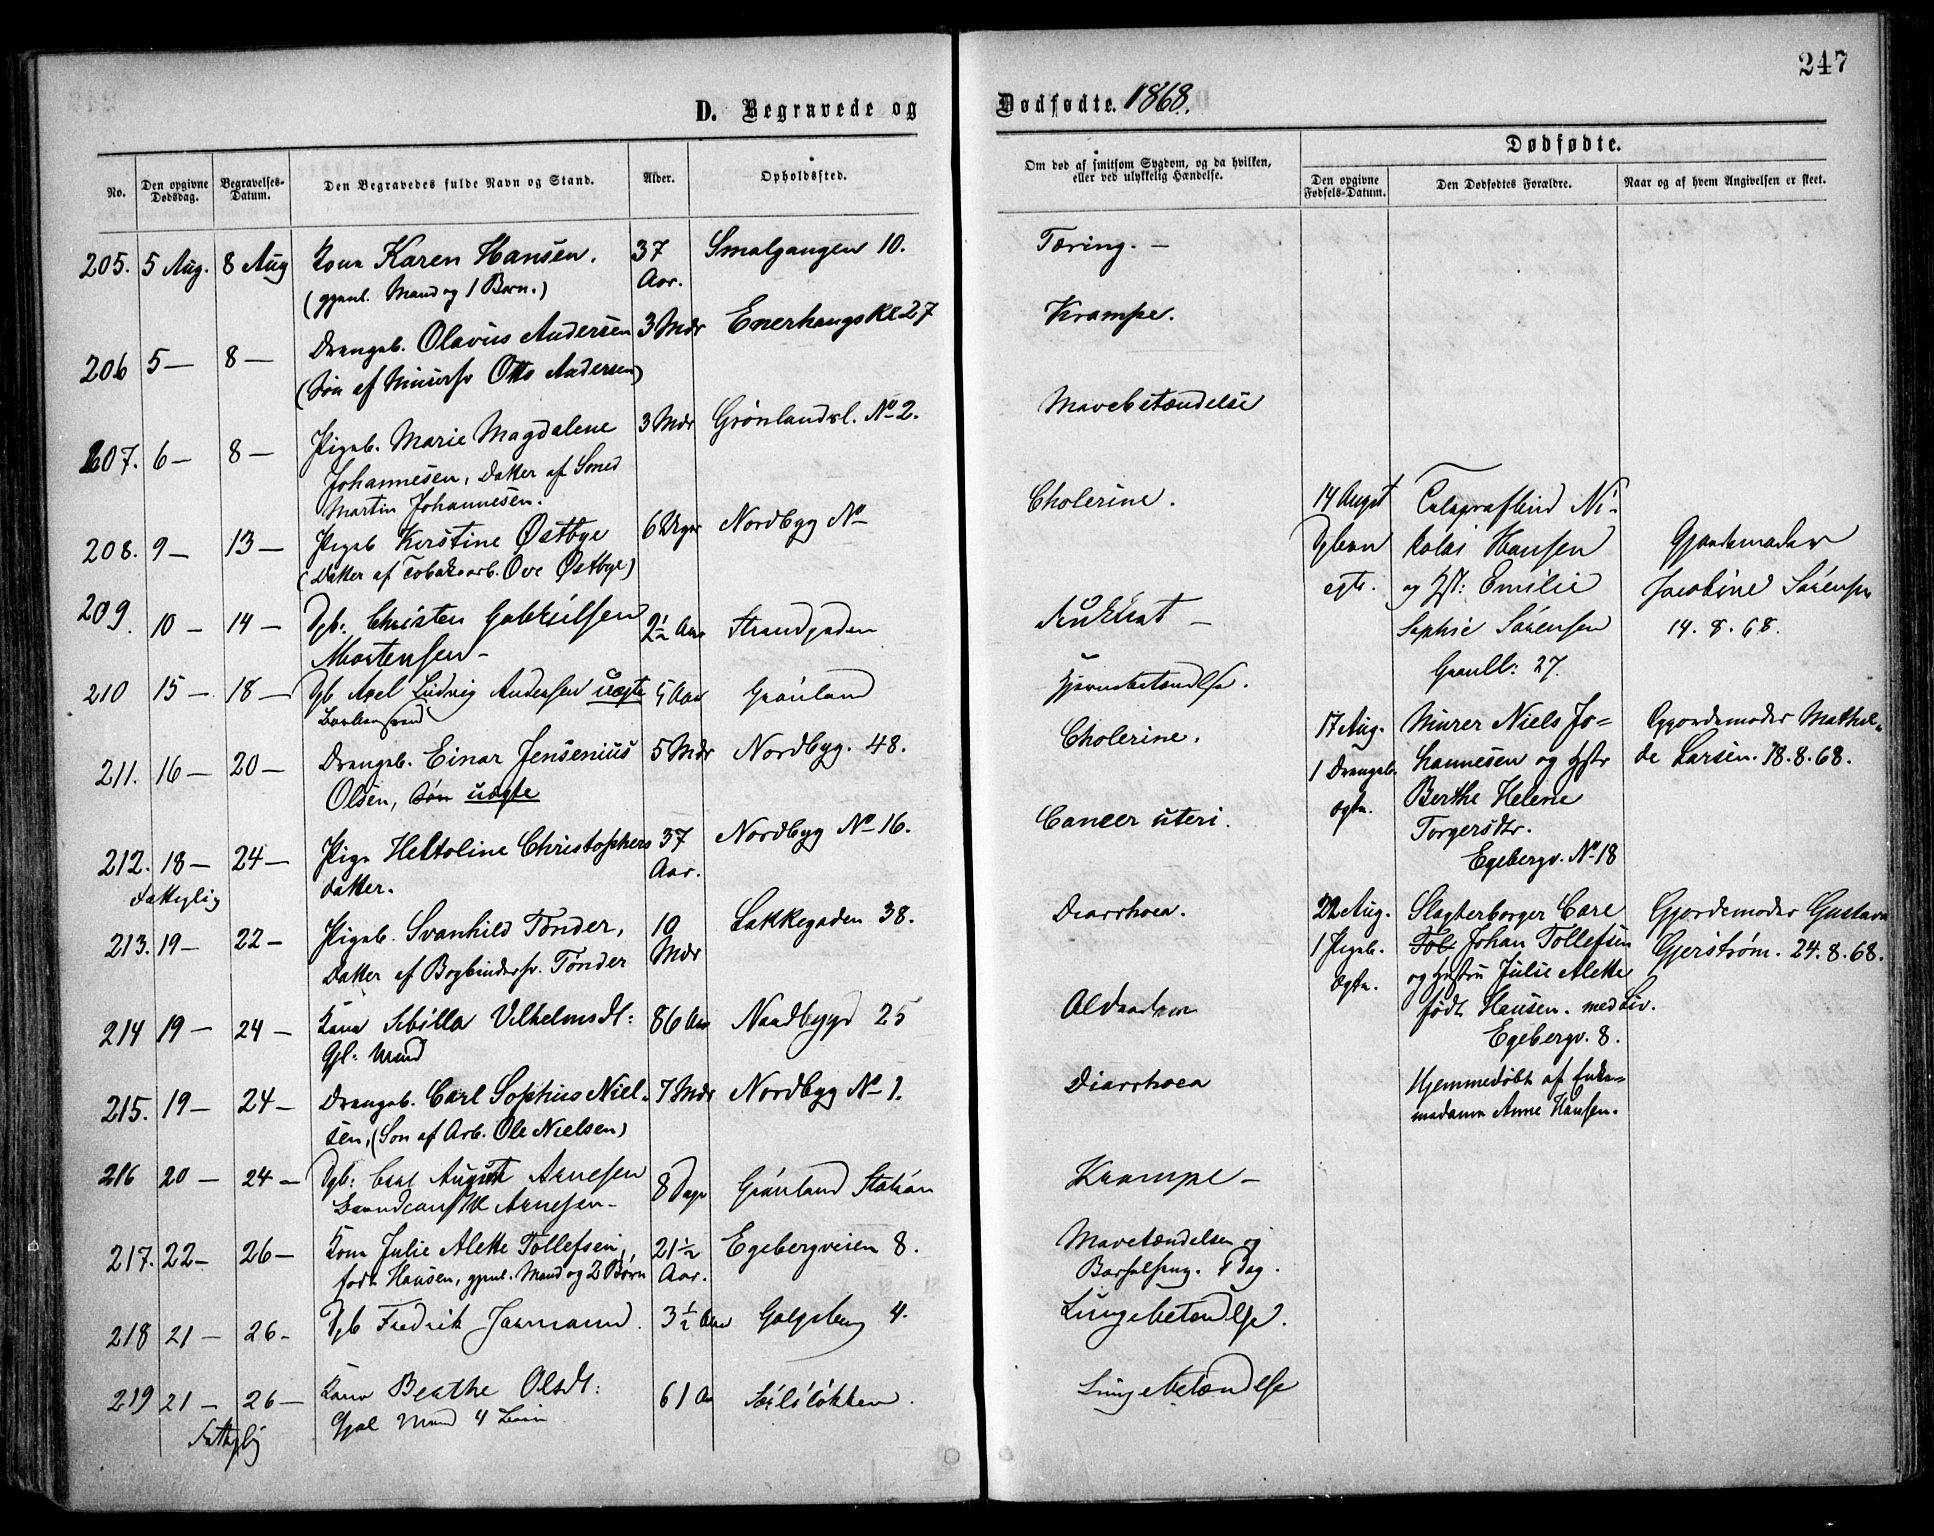 247
D. Begravede og Dødfødte. 1868.
No. Den opgivne Dødsdag. Begravelses-Datum. Den Begravedes fulde Navn og Stand. Alder. Opholdssted. Om død af smitsom Sygdom, og da hvilken, eller ved ulykkelig Hændelse.
Dødfødte.
Den opgivne Fødsels-Datum. Den Dødfødtes Forældre. Naar og af hvem Angivelsen er skeet.
205. 5 Aug. 8 Aug Kona Karen Hansen. 37 Aar. Smalgangen 10. Tæring. —
(gjenl. Mand og 1 Barn.)
206 5 — 8 — Drengeb. Olavus Andersen 3 Mdr Enerhaugskl 27 Krampe.
(Søn af Murersv Otto Andersen)
207. 6 — 8 — Pigeb. Marie Magdalene 3 Mdr Grønlandsl. No 2. Mavebetændelse
Johannesen, Datter af Smed
Martin Johannesen.
208. 9 — 13 — Pigeb Kirstine Østbye 6 Uger Nordbyg No Cholerine.
(Datter af Tobaksarb. Ove Østbye)
209. 10 — 14 — Dgb: Christen Gabrielsen 2½ Aar Strandgaden
Mortensen —
210 15 — 18 — Dgb Axel Ludvig Andersen uægte 5 Aar Grønland Hjernebetændelse.
211. 16 — 20 — Drengeb. Einar Jensenius 5 Mdr Nordbyg. 48. Cholerine.
Olsen, Søn uægte
212. 18 — 24 — Pige Heltoline Christophers 37 Aar. Nordbyg No 16. Cancer uteri.
datter.
Fattiglig
213. 19 — 22 — Pigeb. Svanhild Tønder, 10 Mdr Lakkegaden 38. Diarrhoea.
Datter af Bogbindersv. Tønder
214 19 — 24 — Kona Sibilla Vilhelmsdt: 86 Aar Nordbygd 25 Alderdom
Gjl: Mand
215. 19 — 24 — Drengeb. Carl Sophus Niel- 7 Mdr Nordbyg No 1. Diarrhoea
sen, (Søn af Arb. Ole Nielsen)
216 20 — 24 — Dgb: Carl August Arnesen 8 Dage Grønland Station Krampe —
Arnesen —
217. 22 — 26 — Kona Julie Alette Tollefsen, 21½ Aar. Egebergveien 8. Mavetændelsen og
født Hansen, gjenl. Mand og 2 Børn Barselseng. 1 Dag.
218 21 — 26 - Dgb Fredrik Jarmand. 3½ Aar Galgeberg 4. Lungebetændelse.
219 21 — 26 — Kona Berthe Olsdt: 61 Aar Sørliløkken. Lungebetændelse
Gjenl Mand 4 Børn
Fattiglig
14 August Telegrafbud Ni-
Dgbarn kolai Hansen Gjordemoder
egte. og Hst: Emilie Jacobine Sørensen
Sophie Sørensen 14. 8. 68.
Grønl: 27.
17 Aug. Murer Niels Jo- Gjordemoder Mathil-
1 Drengeb. hannesen og Hstr de Larsen. 18.8.68.
ægte. Berthe Helene
Torgersdtr.
Egebergv. No 18
22 Aug. Slagterborger Carl Gjordemoder Gustava
1 Pigeb. Tol Johan Tollefsen Gjerstrøm. 24.8.68.
ægte. og Hustru Julie Alette
født Hansen. med Liv.
Egebergv. 8.
Hjemmedøbt af Enke-
madame Anne Hansen.